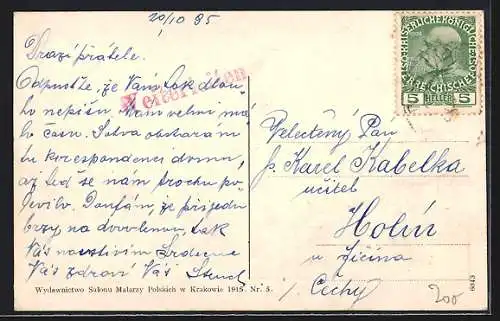 20/10 95
Drazí přátelé.
Odpusťte, že Vám tak dlou
ho nepíšu. Mám velmi má
lo času. Sotva obstarám
tu korespondenci domu,
až teď se nám trochu po
levilo. Doufám, že přijedu
brzy na dovolenou, tak
Vás navštívím. Srdečně
Vás zdraví Váš
Wydawnictwo Salonu Malarzy Polskich w Krakowie 1915. Nr. 5.
KAISERLICHE KÖNIGLICHE
ÖSTERREICHISCHE POST
5 HELLER 5
Velectěný Pan
p. Karel Kabelka
učitel
Holín
u Jičína
Čechy
200